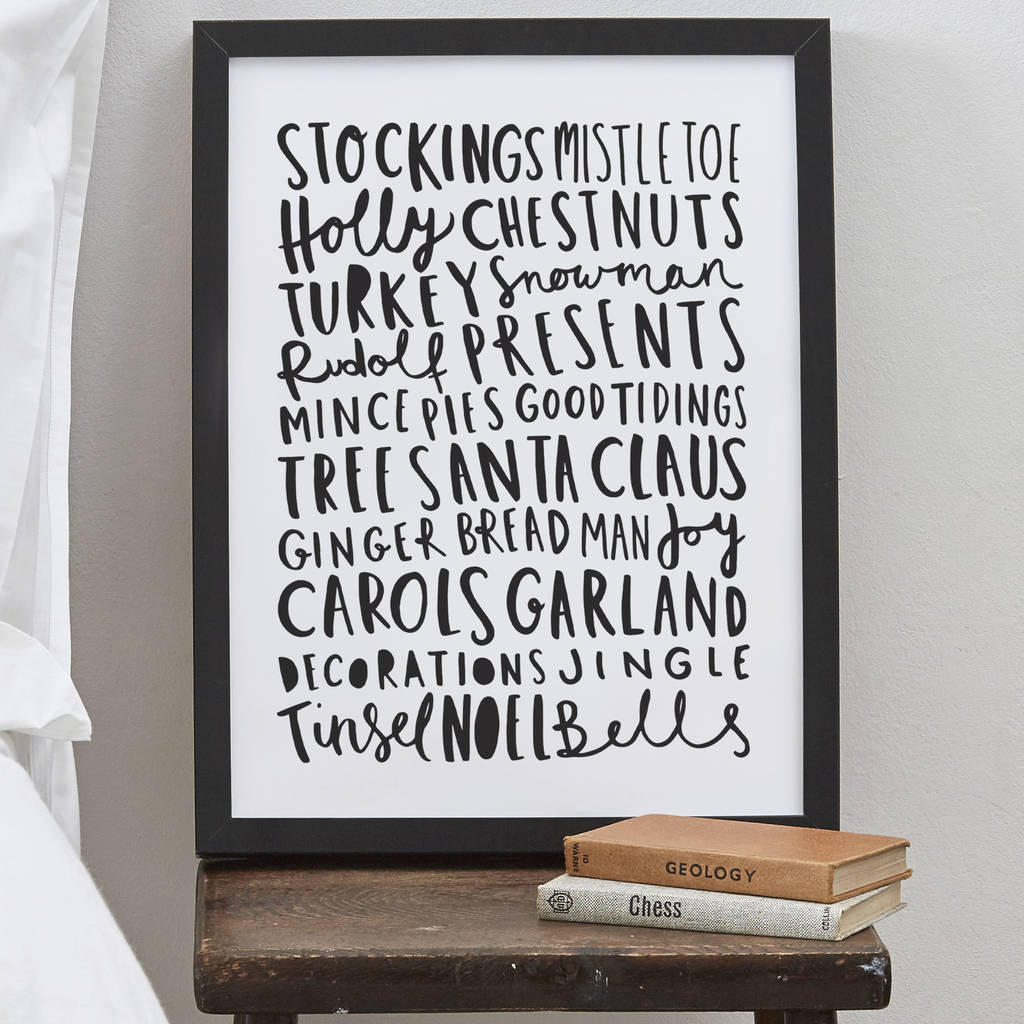 STOCKINGS MISTLETOE
Holly CHESTNUTS
TURKEY Snowman
Rudolf PRESENTS
MINCE PIES GOOD TIDINGS
TREE SANTA CLAUS
GINGER BREAD MAN Joy
CAROLS GARLAND
DECORATIONS JINGLE
Tinsel NOEL Bells
TO WARNE GEOLOGY
Chess COLLINS